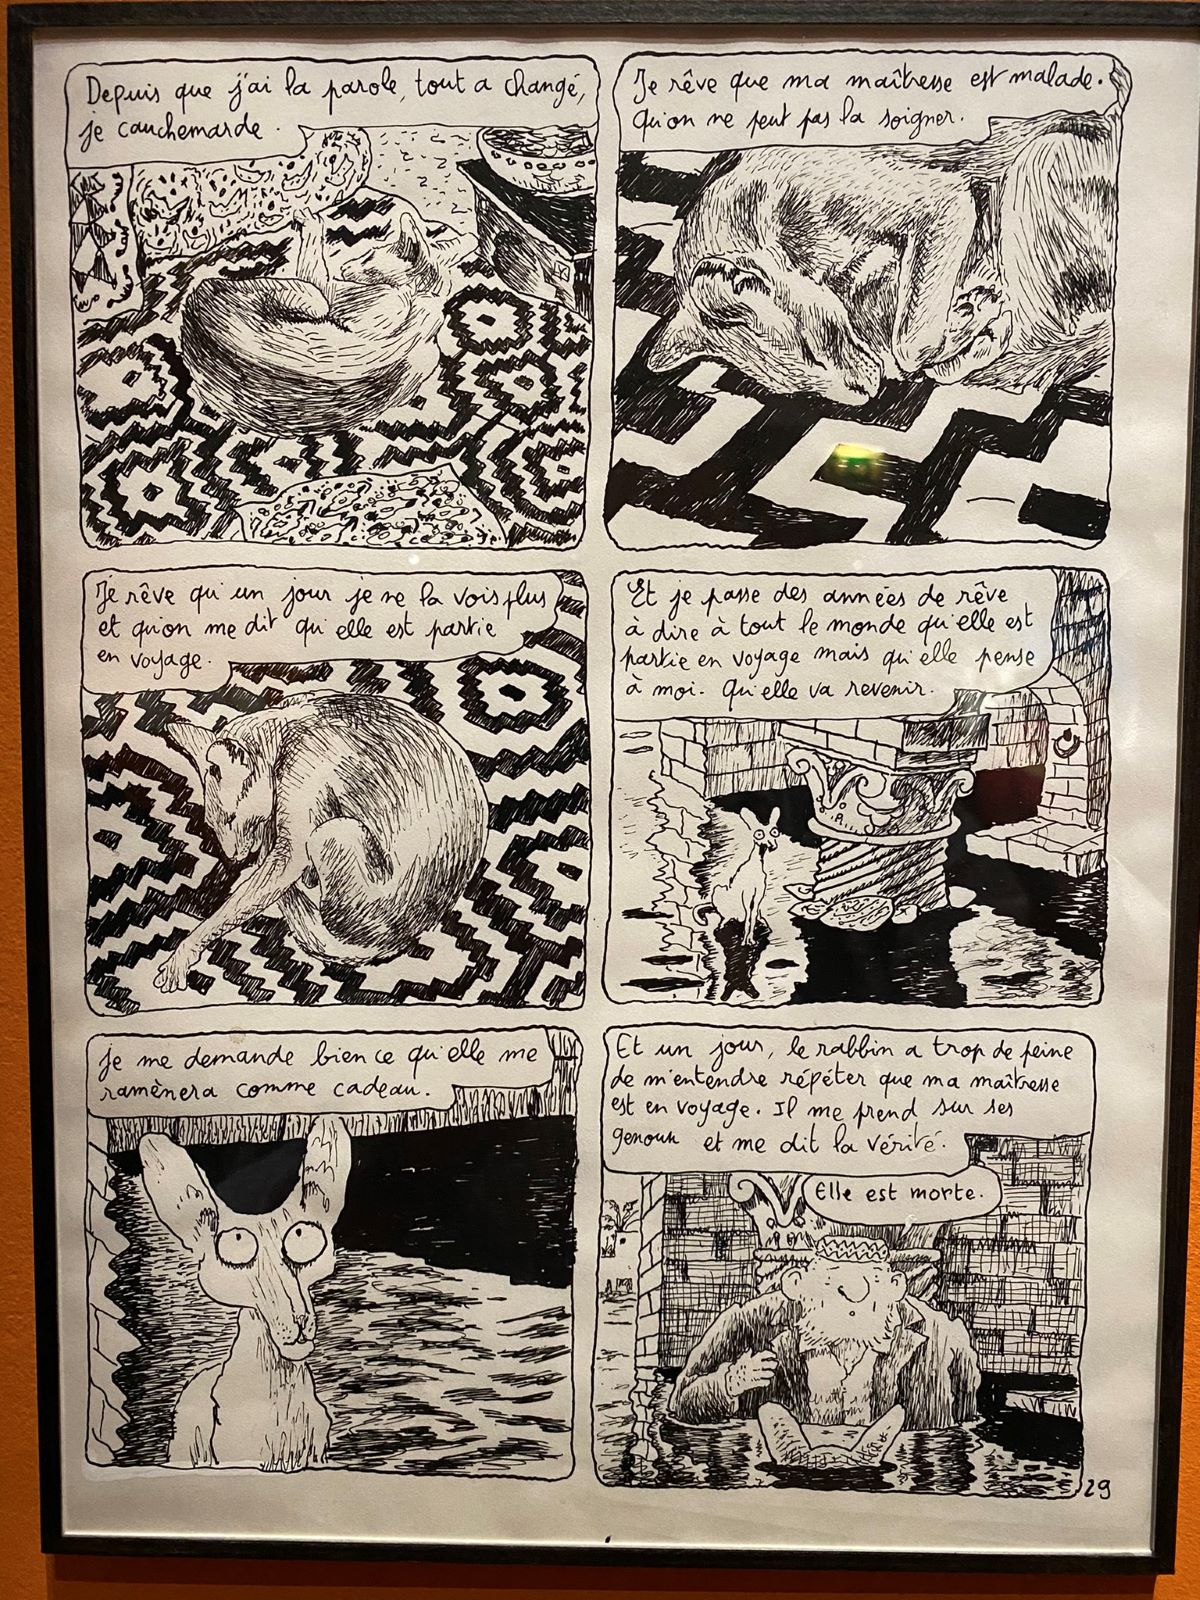 Depuis que j'ai la parole, tout a changé,
je cauchemarde.
Je rêve que ma maîtresse est malade.
Qu'on ne peut pas la soigner.
Je rêve qu'un jour je ne la vois plus
et qu'on me dit qu'elle est partie
en voyage.
Et je passe des années de rêve
à dire à tout le monde qu'elle est
partie en voyage mais qu'elle pense
à moi. Qu'elle va revenir.
Je me demande bien ce qu'elle me
ramènera comme cadeau.
Et un jour, le rabbin a trop de peine
de m'entendre répéter que ma maîtresse
est en voyage. Il me prend sur ses
genoux et me dit la vérité.
Elle est morte.
29